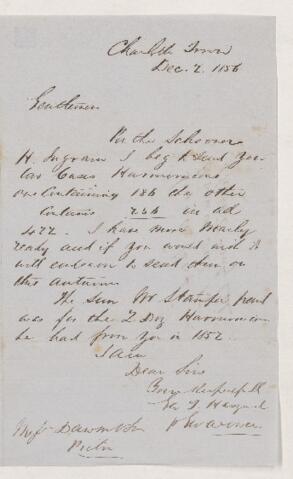 Charlotte Town
Dec. 2. 1856
Gentlemen
Per the Schooner
H. Ingram I beg to send you
two Cases Harmonicons
one Containing 186 the other
Contains 236 in all
422. I have more nearly
ready and if you would wish it
will endeavor to send them on
this autumn
The sum Mr Stamper paid
was for the 2 Doz Harmonicons
he had from you in 1852.
I am
Dear Sirs
Yours Respectfully
Messrs Dawson & Son
Pictou